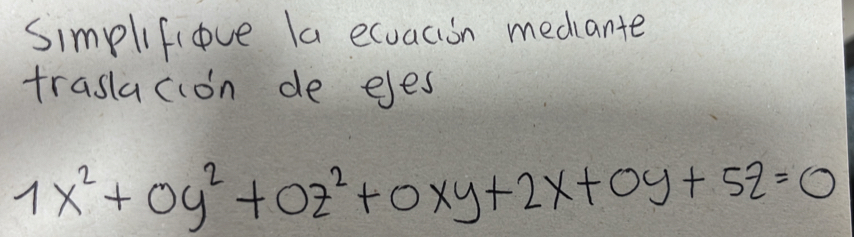 Simplifique la ecuación mediante
traslación de ejes
1x² + 0y² + 0z² + 0xy + 2x + 0y + 5z = 0